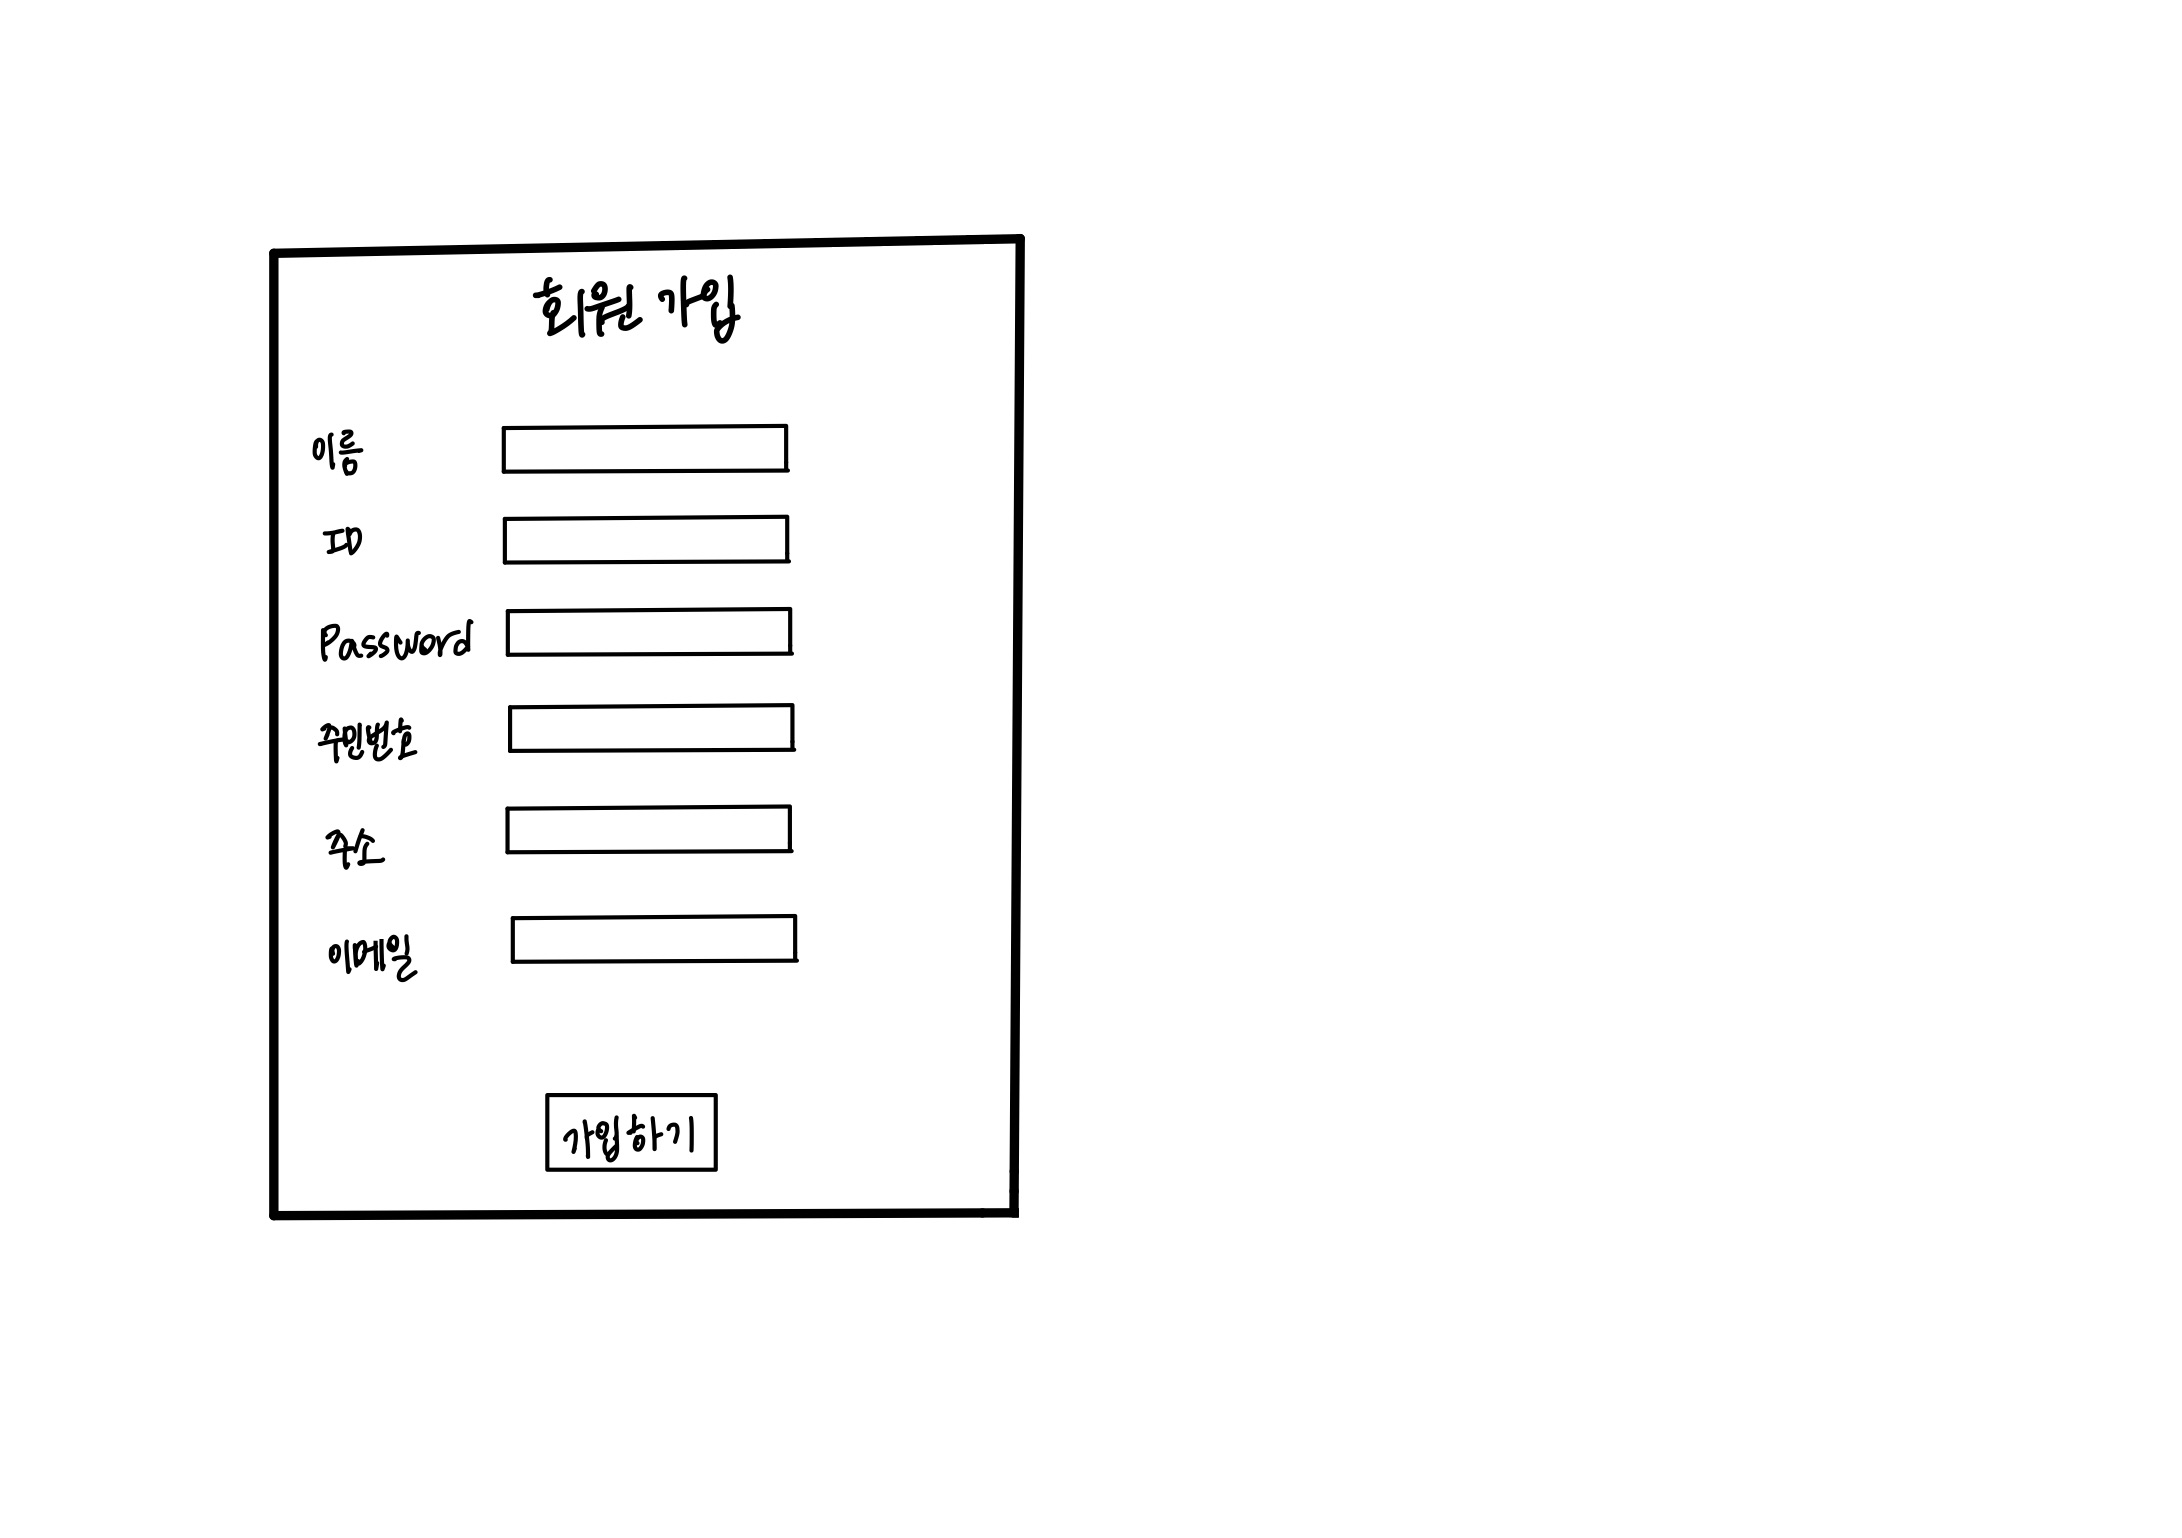 회원 가입
이름
ID
Password
주민번호
주소
이메일
가입하기